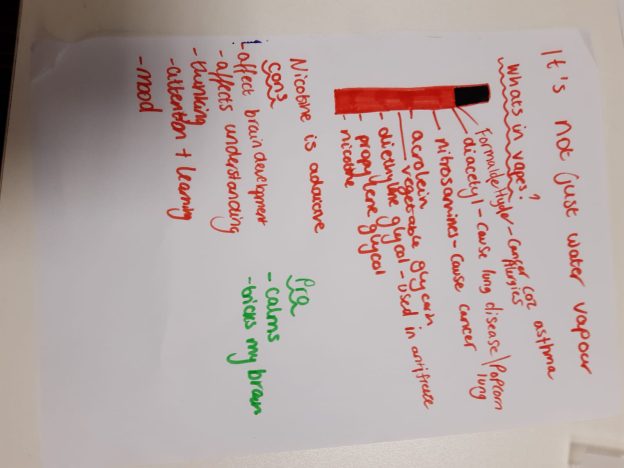 It's not just water vapour
Whats in vapes?
Formaldehyder - cancer coz asthma
Alurgies
diacetyl - cause lung disease/Popcorn
lung
nitrosamines - cause cancer
acrolein
vegetable glycern
diethyline glycol - used in antifreeze
propylene glycol
nicotine
Nicotine is
cons
- affect brain development
- affects understanding
- thinking
- attention + learning
- mood
Pro
- calms
- tricks my brain